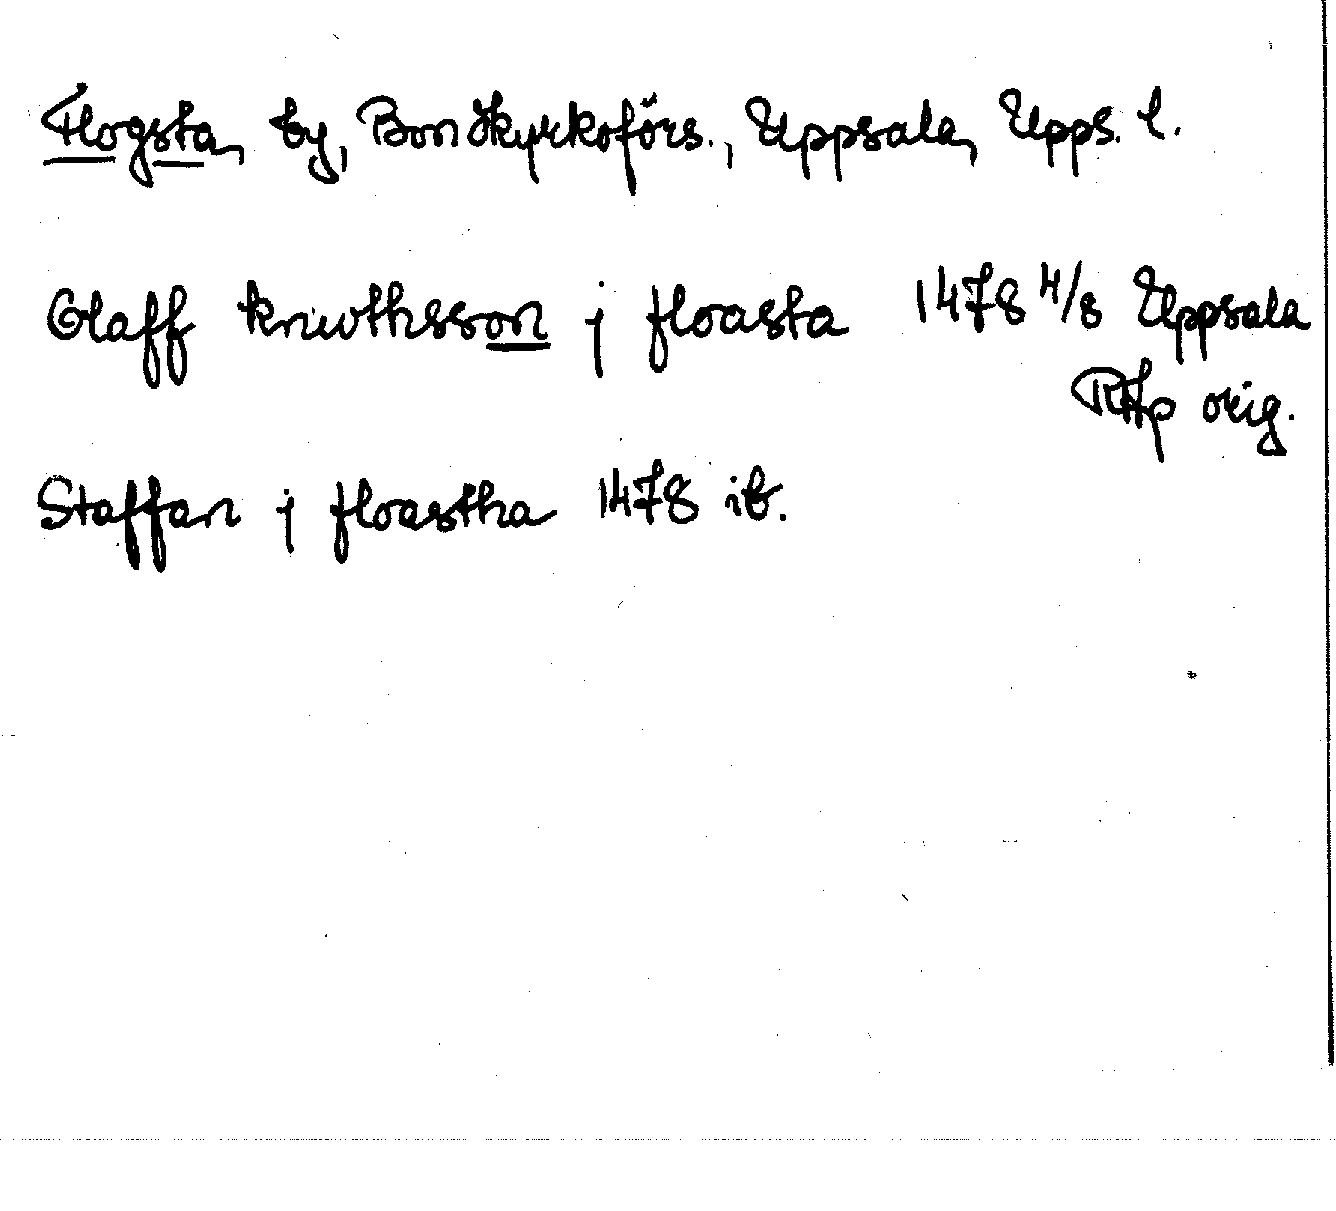 Flogsta, by, Bondkyrkoförs., Uppsala, Upps. l.
Olaff knwthsson j floasta 1478 4/8 Uppsala
RAp orig.
Staffan j floastha 1478 ib.